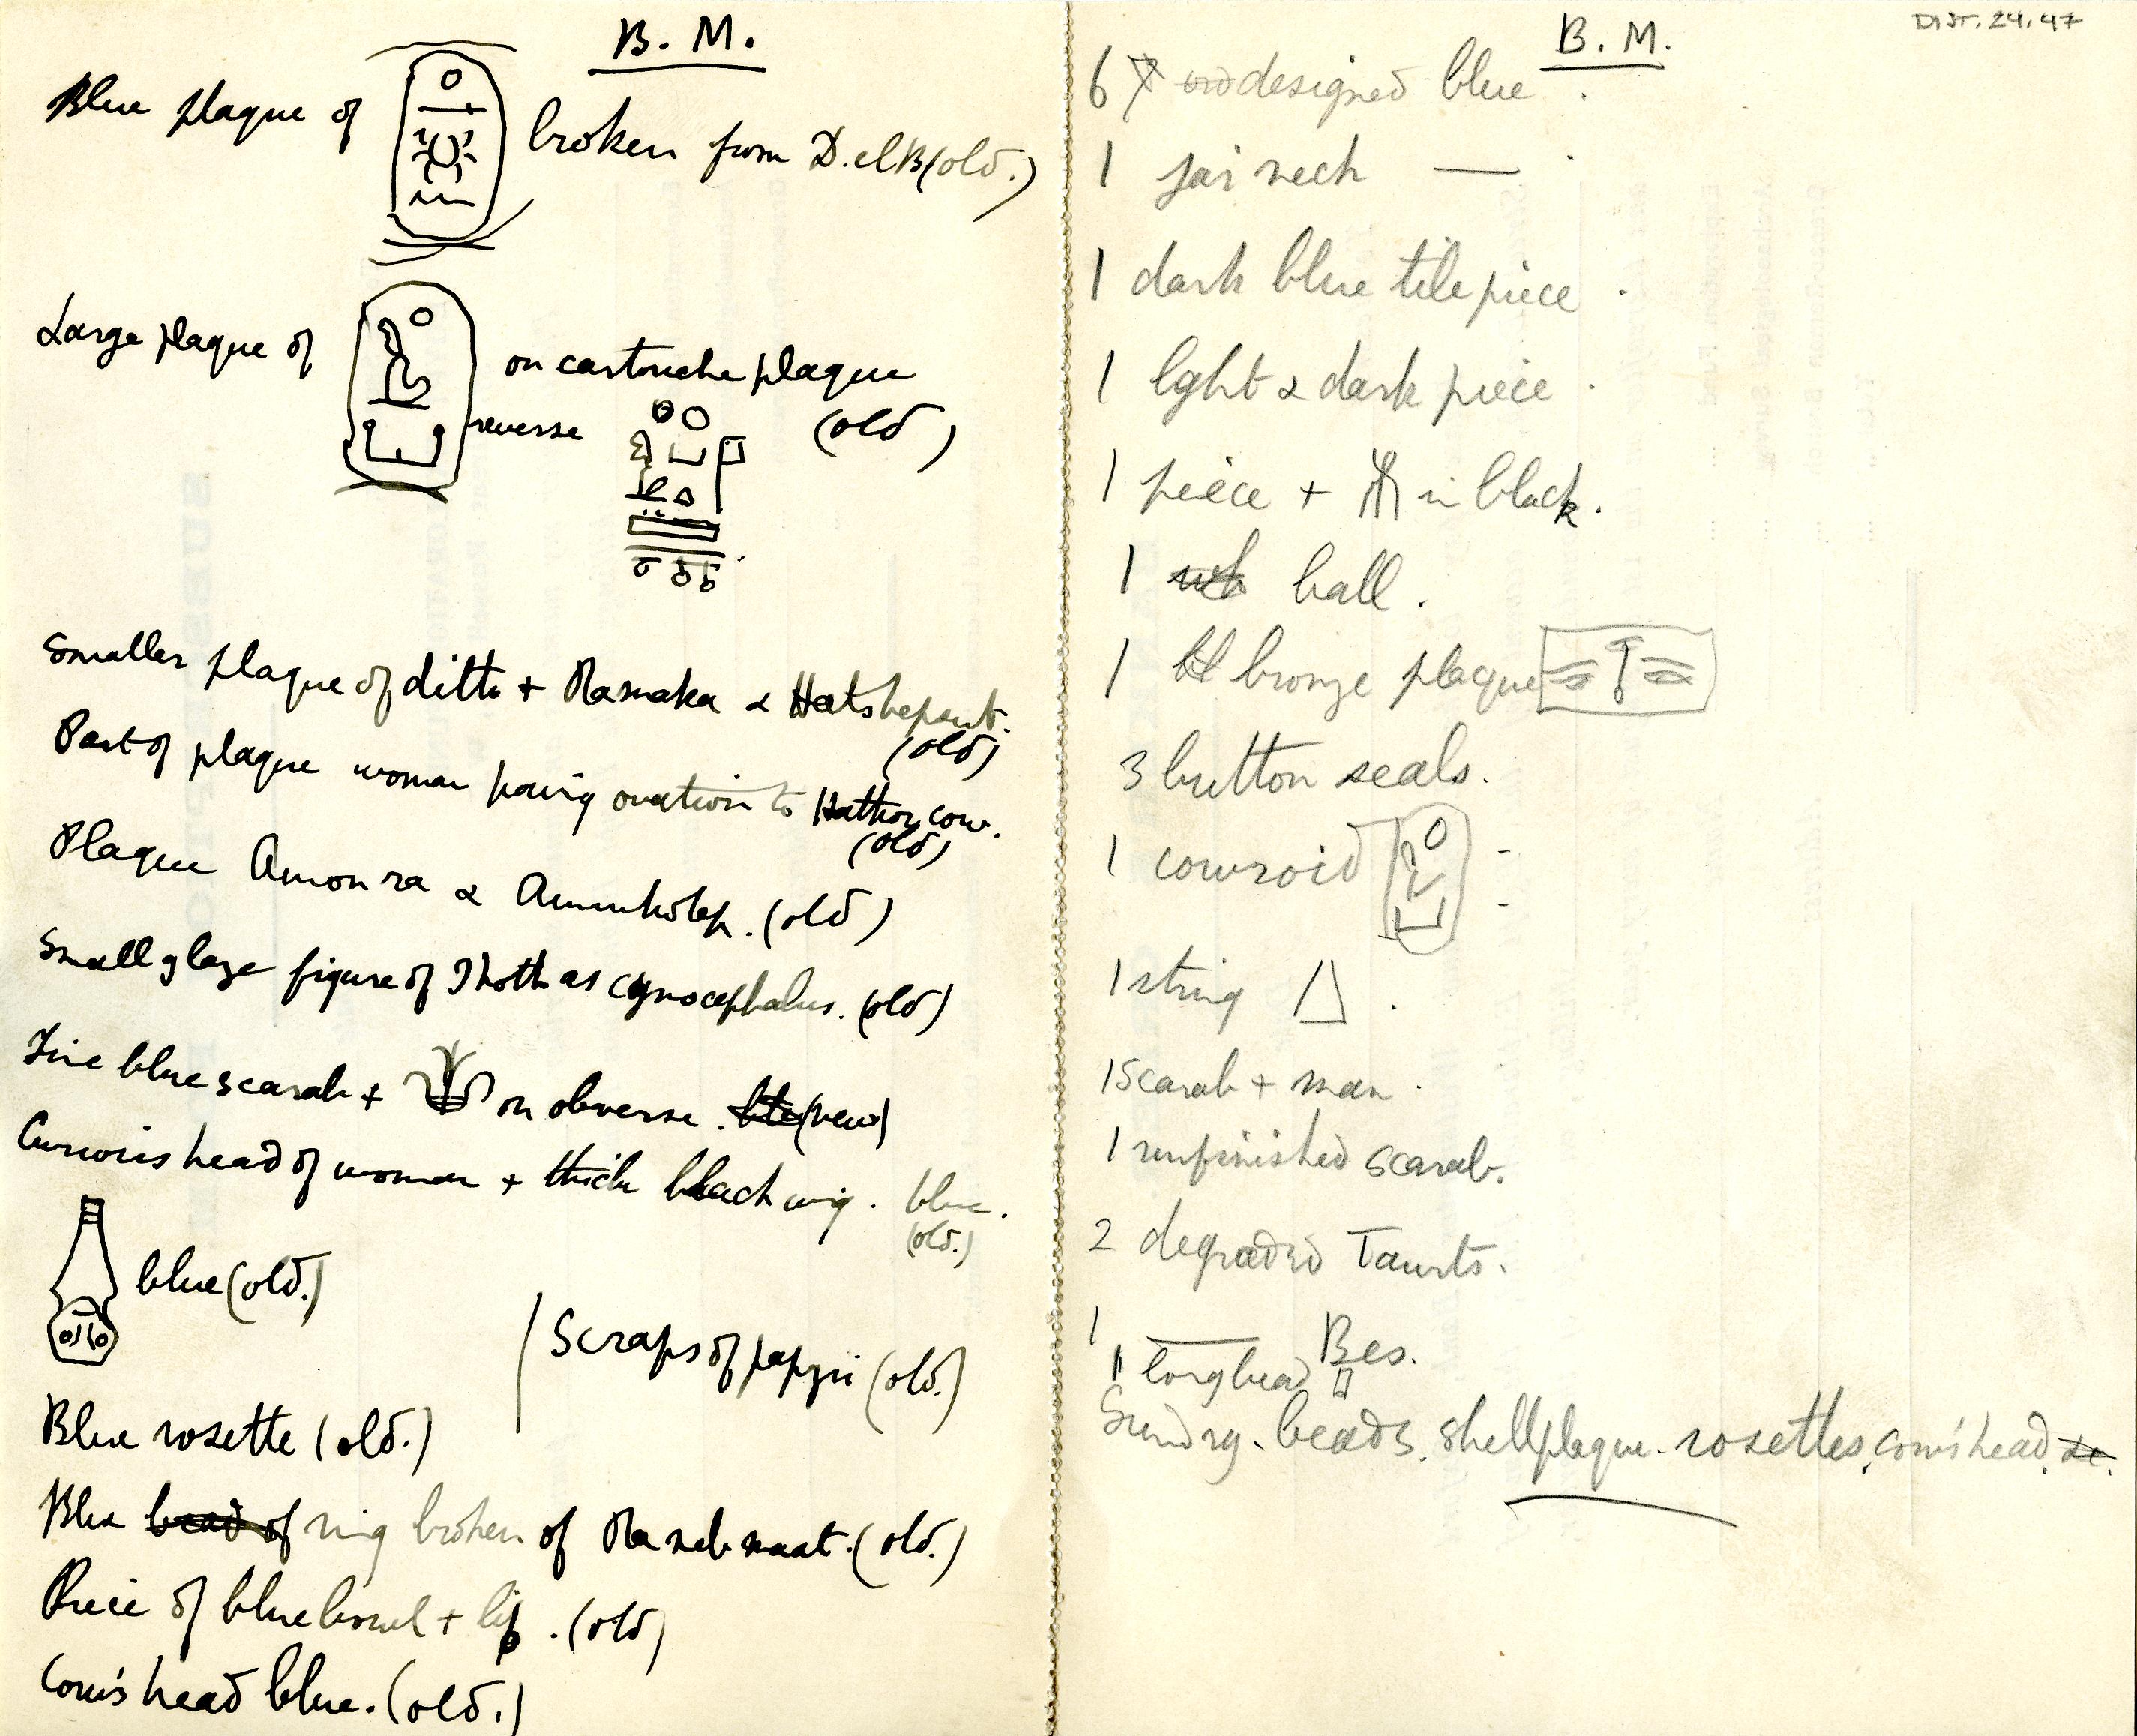 B. M.
Blue plaque of broken from D. el B (old.)
Large plaque of on cartouche plaque
reverse (old)
Smaller plaque of ditto + Ramaka & Hatshepsut.
(old)
Part of plaque woman paying ovation to Hathor cow.
(old)
Plaque Amon ra & Amenhotep. (old)
Small glaze figure of Thoth as cynocephalus. (old)
Fine blue scarab + on obverse. (new)
Curious head of woman + thick black wig. blue.
(old.)
blue (old.)
Scraps of papyri (old.)
Blue rosette (old.)
Blue bead of ring broken of Ra neb maat. (old.)
Piece of blue bowl + lip. (old)
Cow's head blue. (old.)
DIST. 24. 47
B. M.
6 designed blue
1 jar neck —
1 dark blue tile piece
1 light & dark piece
1 piece + in black.
1 ball.
1 bronze plaque
3 button seals.
1 cowroid
1 string
1 Scarab + man
1 unfinished scarab.
2 degraded Taurts.
1 — Bes.
1 long bead
Sundry. beads, shell plaque. rosettes, cow's head, &c.